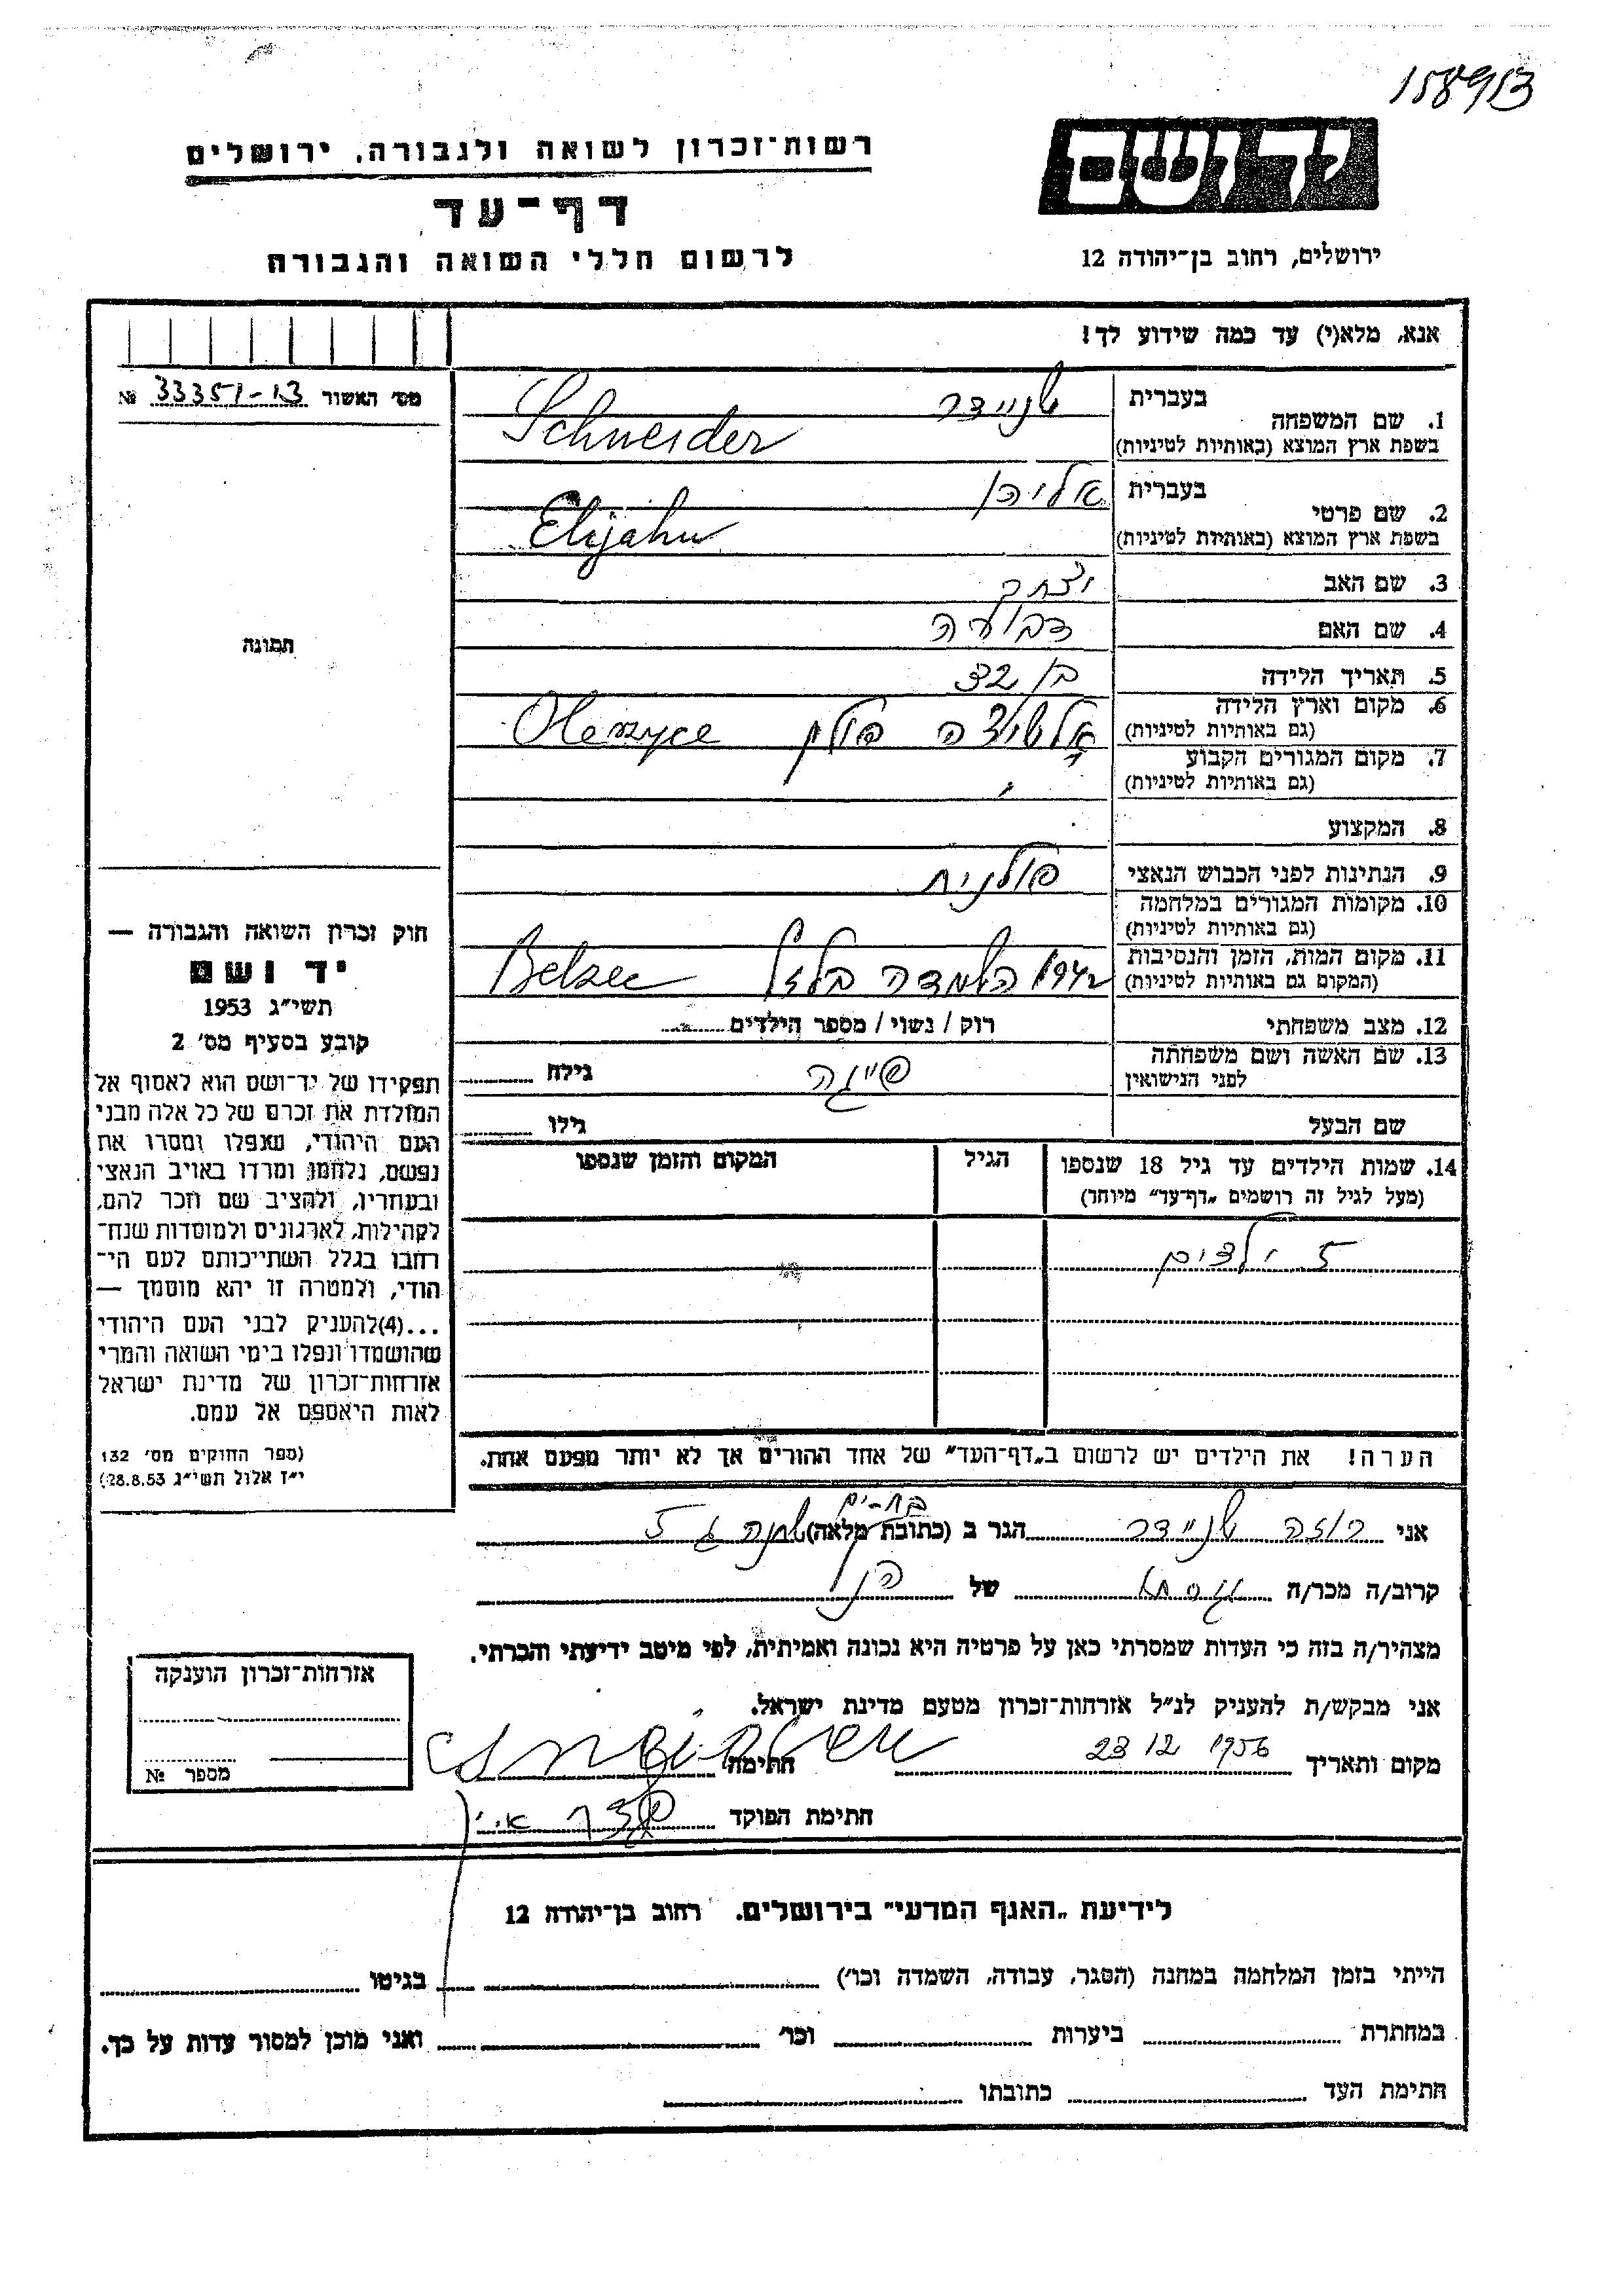 158913
יד ושם
ירושלים, רחוב בן־יהודה 12
רשות־זכרון לשואה ולגבורה, ירושלים
דף־עד
לרשום חללי השואה והגבורה
אנא, מלא(י) עד כמה שידוע לך!
מס׳ האשור 33351-13 №
תמונה
חוק זכרון השואה והגבורה —
יד ושם
תשי״ג 1953
קובע בסעיף מס׳ 2
תפקידו של יד־ושם הוא לאסוף אל
המולדת את זכרם של כל אלה מבני
העם היהודי, שנפלו ומסרו את
נפשם, נלחמו ומרדו באויב הנאצי
ובעוזריו, ולהציב שם וזכר להם,
לקהילות, לארגונים ולמוסדות שנח־
רחבו בגלל השתייכותם לעם הי־
הודי, ולמטרה זו יהא מוסמך —
...(4)להעניק לבני העם היהודי
שהושמדו ונפלו בימי השואה והמרי
אזרחות־זכרון של מדינת ישראל
לאות היאספם אל עמם.
(ספר החוקים מס׳ 132
י״ז אלול תשי״ג 28.8.53)
1. שם המשפחה
בעברית שניידר
בשפת ארץ המוצא (באותיות לטיניות) Schneider
2. שם פרטי
בעברית אליהו
בשפת ארץ המוצא (באותיות לטיניות) Elijahu
3. שם האב יצחק
4. שם האם דבורה
5. תאריך הלידה בן 32
6. מקום וארץ הלידה
(גם באותיות לטיניות) אלשיצה פולין Oleszyce
7. מקום המגורים הקבוע
(גם באותיות לטיניות)
8. המקצוע
9. הנתינות לפני הכבוש הנאצי פולנית
10. מקומות המגורים במלחמה
(גם באותיות לטיניות)
11. מקום המות, הזמן והנסיבות
(המקום גם באותיות לטיניות) 1942 השמדה בלזץ Belzec
12. מצב משפחתי רוק / נשוי / מספר הילדים
13. שם האשה ושם משפחתה
לפני הנישואין פייגה גילה
שם הבעל גילו
14. שמות הילדים עד גיל 18 שנספו הגיל המקום והזמן שנספו
(מעל לגיל זה רושמים „דף־עד״ מיוחד)
5 ילדים
הערה! את הילדים יש לרשום ב„דף־העד״ של אחד ההורים אך לא יותר מפעם אחת.
אני רוזה שניידר הגר ב (כתובת מלאה)
קרוב/ה מכר/ה של הנ״ל
מצהיר/ה בזה כי העדות שמסרתי כאן על פרטיה היא נכונה ואמיתית, לפי מיטב ידיעתי והכרתי.
אני מבקש/ת להעניק לנ״ל אזרחות־זכרון מטעם מדינת ישראל.
מקום ותאריך 23 12 1956 חתימה
חתימת הפוקד
אזרחות־זכרון הוענקה
מספר №
לידיעת „האגף המדעי״ בירושלים. רחוב בן־יהודה 12
הייתי בזמן המלחמה במחנה (הסגר, עבודה, השמדה וכו׳) בגיטו
במחתרת ביערות וכו׳ ואני מוכן למסור עדות על כך.
חתימת העד כתובתו